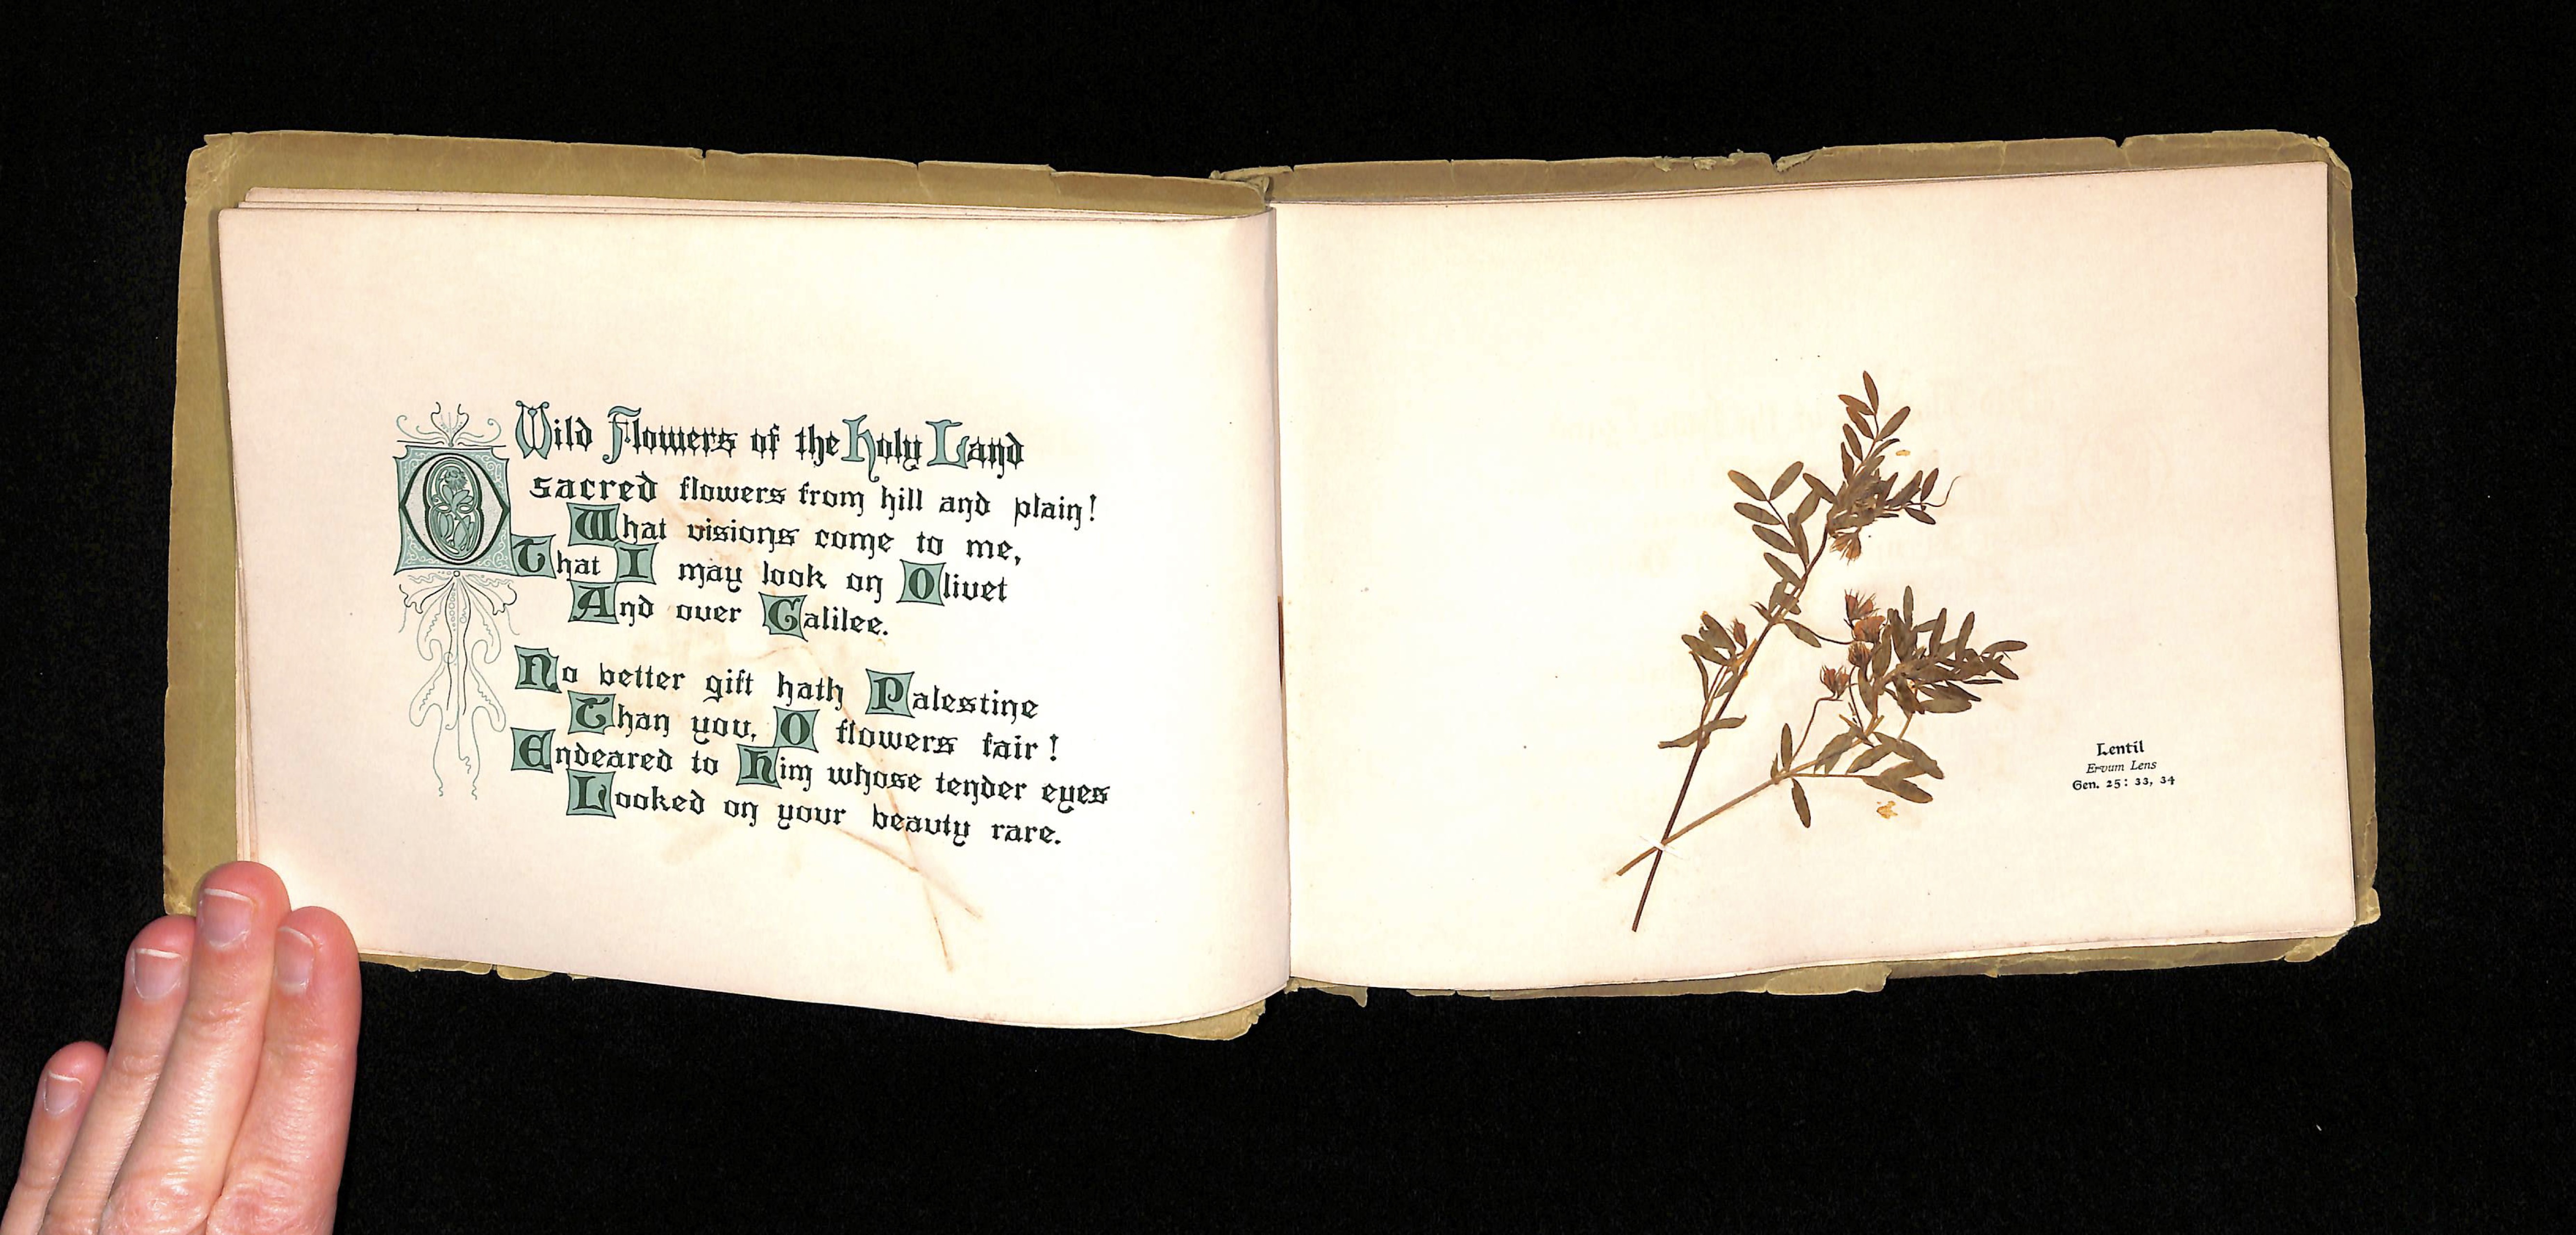 Wild Flowers of the Holy Land
O sacred flowers from hill and plain!
What visions come to me,
That I may look on Olivet
And over Galilee.
No better gift hath Palestine
Than you, O flowers fair!
Endeared to Him whose tender eyes
Looked on your beauty rare.
Lentil
Ervum Lens
Gen. 25: 33, 34